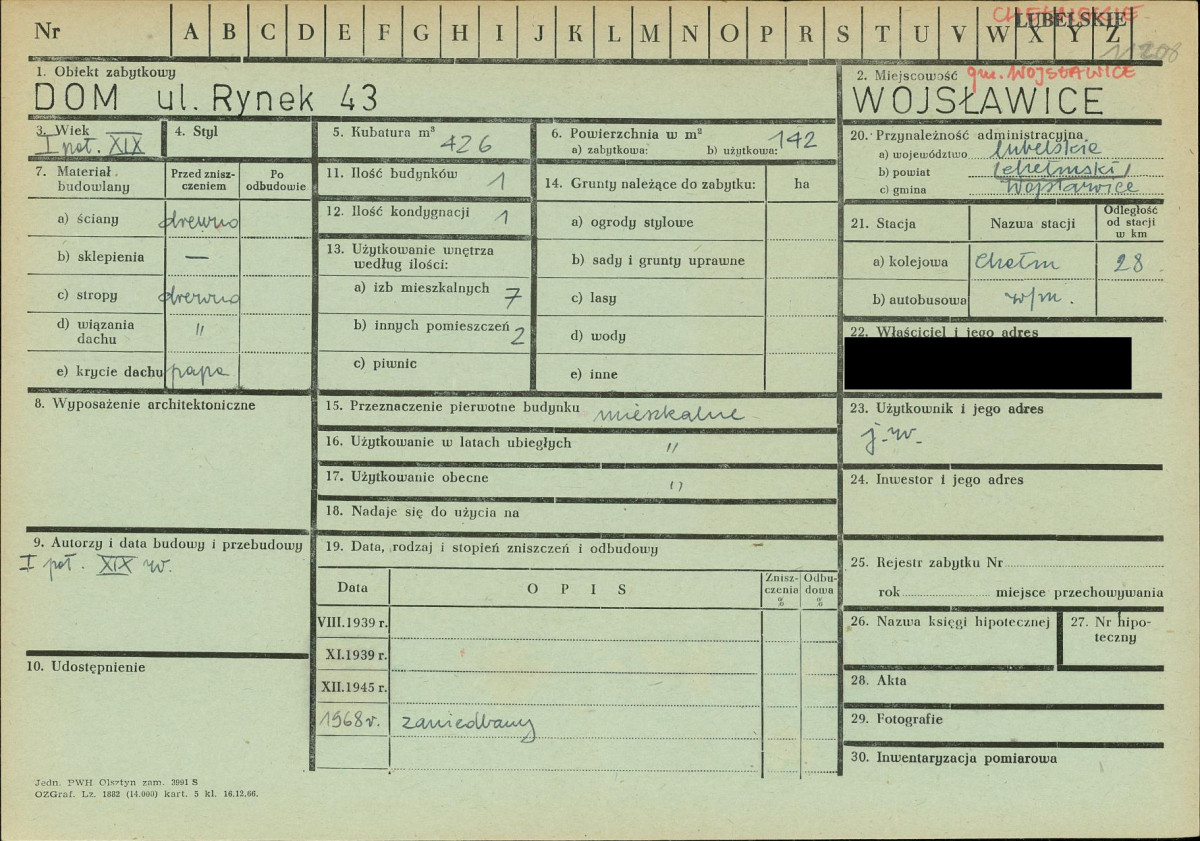 Nr A B C D E F G H I J K L M N O P R S T U V W X Y Z
CHEŁMSKIE
LUBELSKIE
11208
1. Obiekt zabytkowy
DOM ul. Rynek 43
2. Miejscowość gm. WOJSŁAWICE
WOJSŁAWICE
3. Wiek
I poł. XIX
4. Styl
5. Kubatura m³
426
6. Powierzchnia w m²
a) zabytkowa: b) użytkowa: 142
7. Materiał budowlany
Przed zniszczeniem
Po odbudowie
a) ściany drewno
b) sklepienia —
c) stropy drewno
d) wiązania dachu "
e) krycie dachu papa
8. Wyposażenie architektoniczne
9. Autorzy i data budowy i przebudowy
I poł. XIX w.
10. Udostępnienie
11. Ilość budynków 1
12. Ilość kondygnacji 1
13. Użytkowanie wnętrza
według ilości:
a) izb mieszkalnych 7
b) innych pomieszczeń 2
c) piwnic
14. Grunty należące do zabytku: ha
a) ogrody stylowe
b) sady i grunty uprawne
c) lasy
d) wody
e) inne
15. Przeznaczenie pierwotne budynku mieszkalne
16. Użytkowanie w latach ubiegłych "
17. Użytkowanie obecne "
18. Nadaje się do użycia na
19. Data, rodzaj i stopień zniszczeń i odbudowy
Data OPIS Zniszczenia % Odbudowa %
VIII.1939 r.
XI.1939 r.
XII.1945 r.
1968 r. zaniedbany
20. Przynależność administracyjna
a) województwo lubelskie
b) powiat (chełmski)
c) gmina Wojsławice
21. Stacja Nazwa stacji Odległość od stacji w km
a) kolejowa Chełm 28
b) autobusowa w/m.
22. Właściciel i jego adres
23. Użytkownik i jego adres
j.w.
24. Inwestor i jego adres
25. Rejestr zabytku Nr
rok miejsce przechowywania
26. Nazwa księgi hipotecznej
27. Nr hipoteczny
28. Akta
29. Fotografie
30. Inwentaryzacja pomiarowa
Jedn. PWH Olsztyn zam. 3991 S
OZGraf. Lz. 1882 (14.000) kart. 5 kl. 16.12.66.